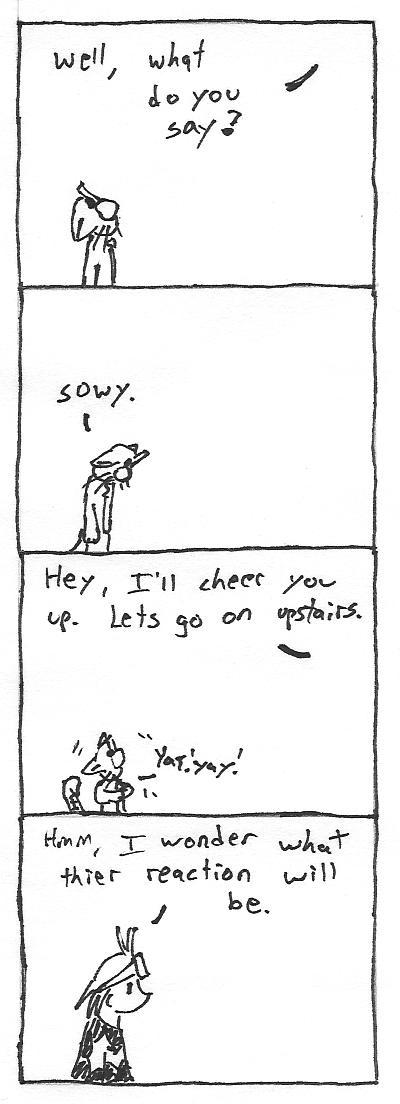 Well, what
do you
say?
sowy.
Hey, I'll cheer you
up. Lets go on upstairs.
Yay! yay!
Hmm, I wonder what
thier reaction will
be.